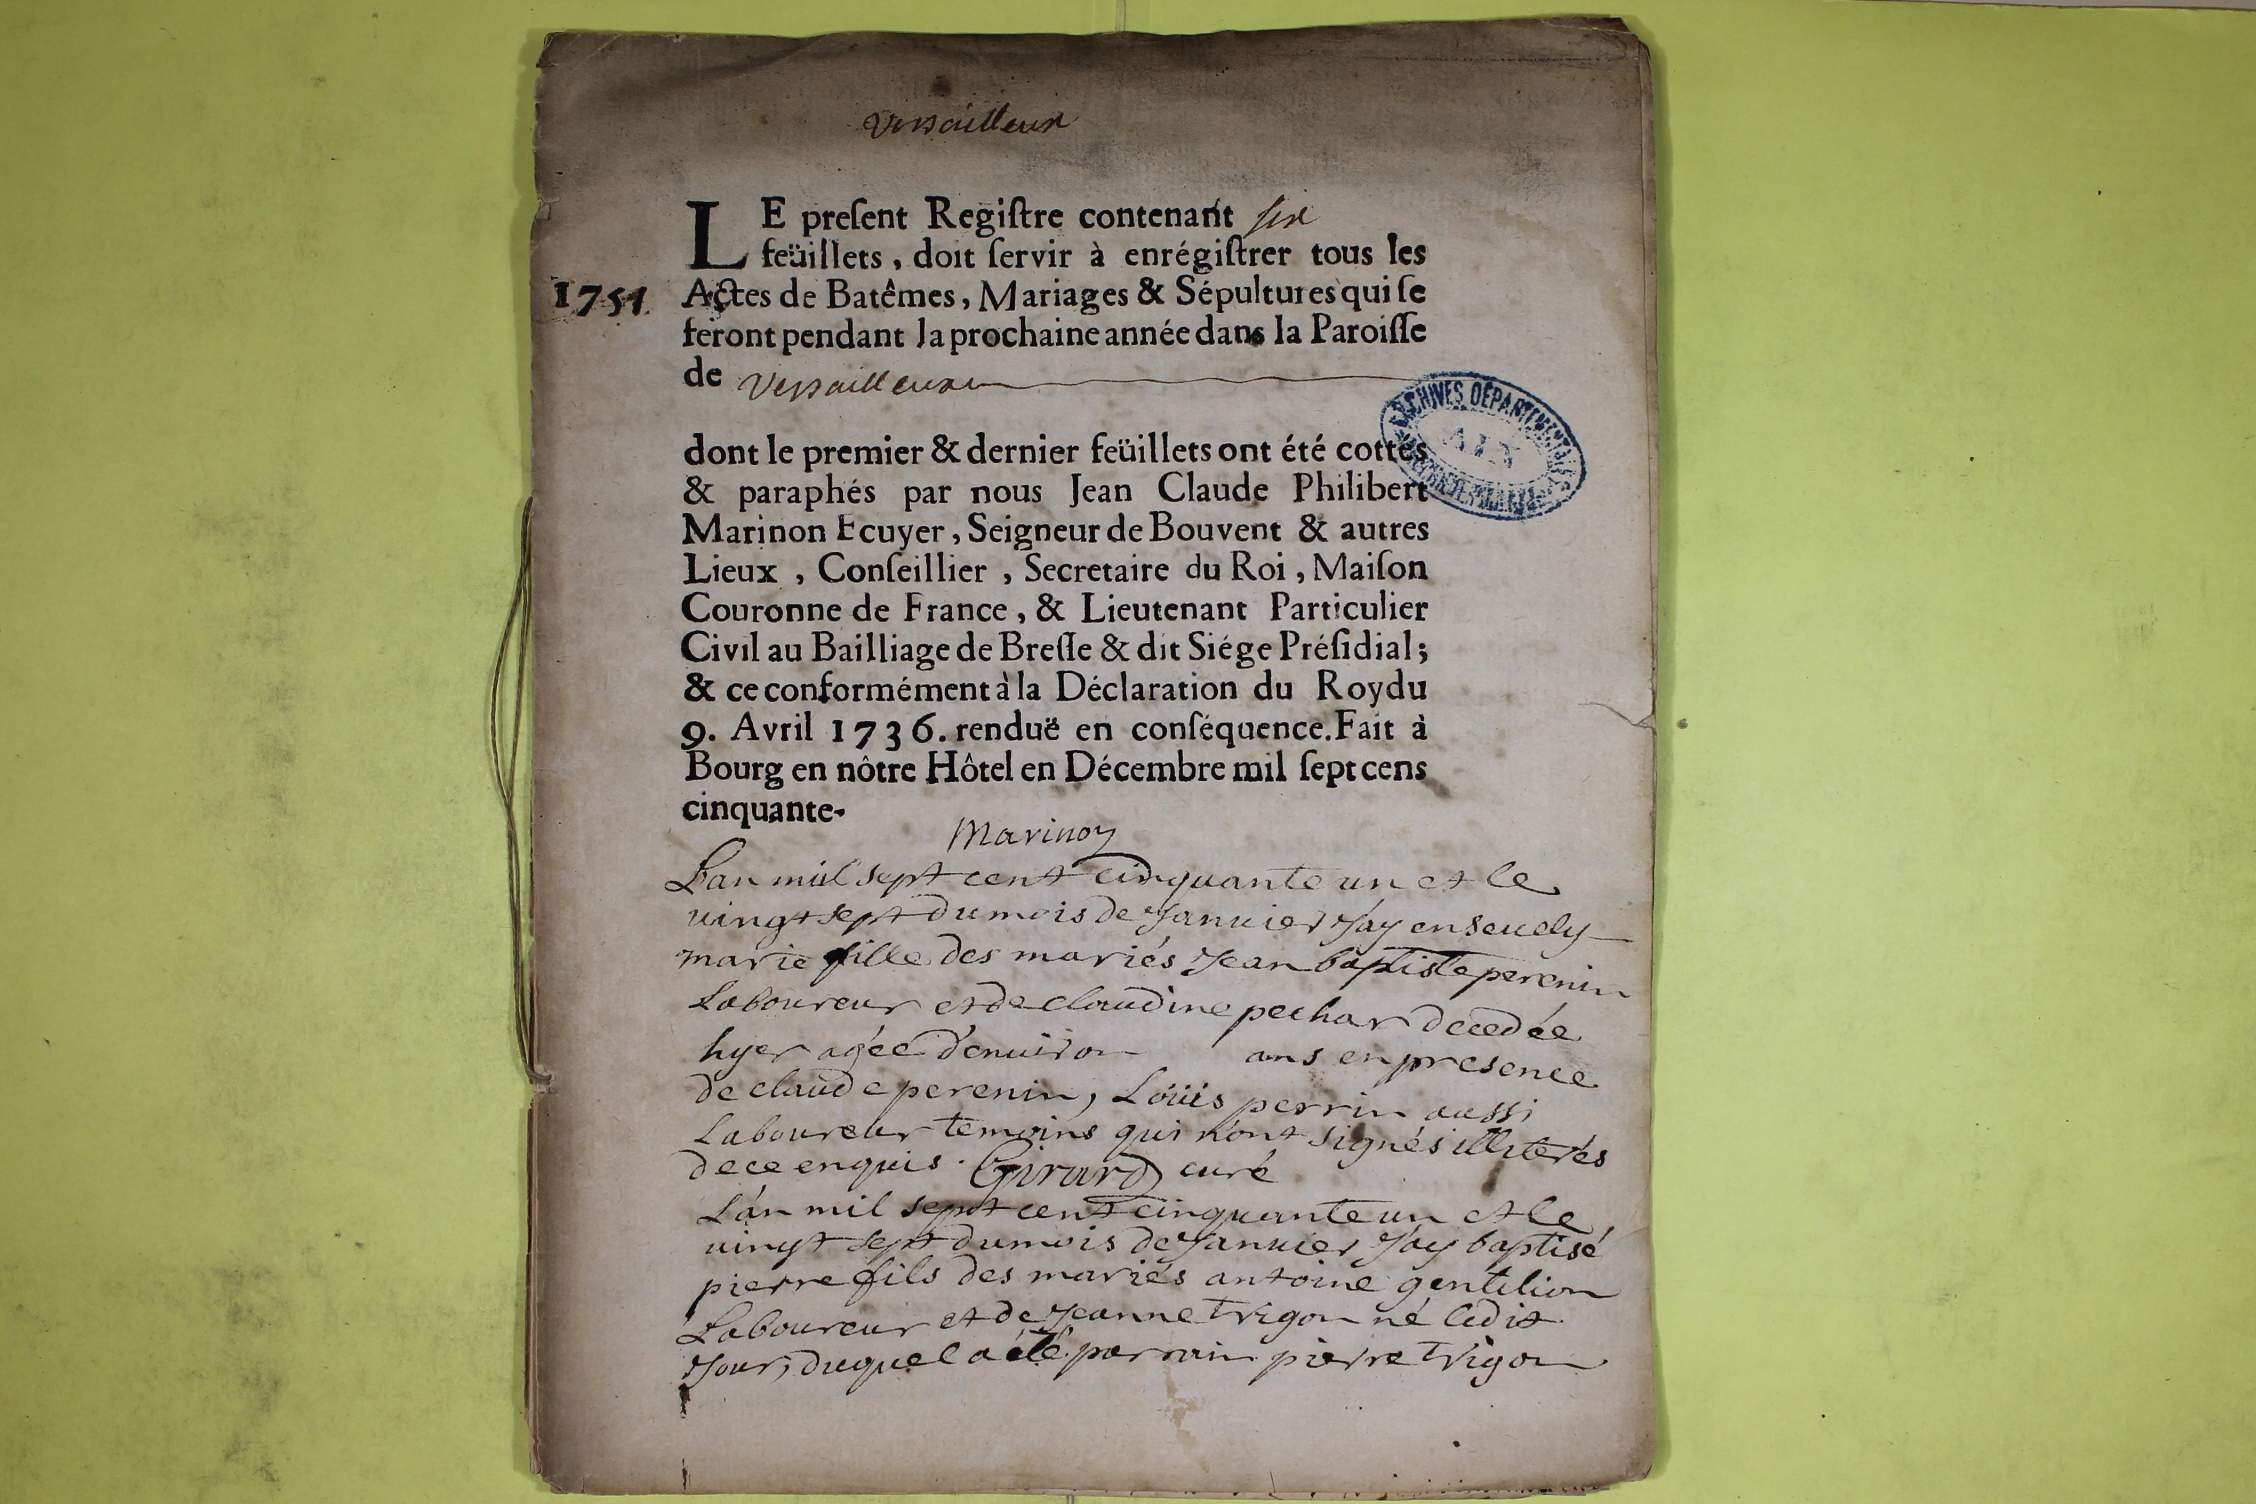 Versailleux
LE preſent Regiſtre contenant six
feüillets, doit ſervir à enrégiſtrer tous les
1751. Actes de Batêmes, Mariages & Sépultures qui ſe
feront pendant la prochaine année dans la Paroiſſe
de Versailleux
ARCHIVES DÉPARTEMENTALES
AIN
dont le premier & dernier feüillets ont été cottés
& paraphés par nous Jean Claude Philibert
Marinon Ecuyer, Seigneur de Bouvent & autres
Lieux, Conſeillier, Secretaire du Roi, Maiſon
Couronne de France, & Lieutenant Particulier
Civil au Bailliage de Breſſe & dit Siége Préſidial;
& ce conformément à la Déclaration du Roy du
9. Avril 1736. renduë en conſéquence. Fait à
Bourg en nôtre Hôtel en Décembre mil ſept cens
cinquante.
Marinon
Lan mil sept cent cinquante un et le
vingt sept du mois de Janvier J'ay ensevely
marie fille des mariés Jean baptiste perenin
Laboureur et de claudine pechar decedée
hyer agée d'environ ans en presence
de claude perenin, Loüis perrin aussi
Laboureur temoins qui n'ont signés illiterés
de ce enquis. Girard curé
L'an mil sept cent cinquante un et le
vingt sept du mois de Janvier J'ay baptisé
pierre fils des mariés antoine gentilion
Laboureur et de Jeanne trigon né ledit
Jour, duquel a été parrain pierre trigon